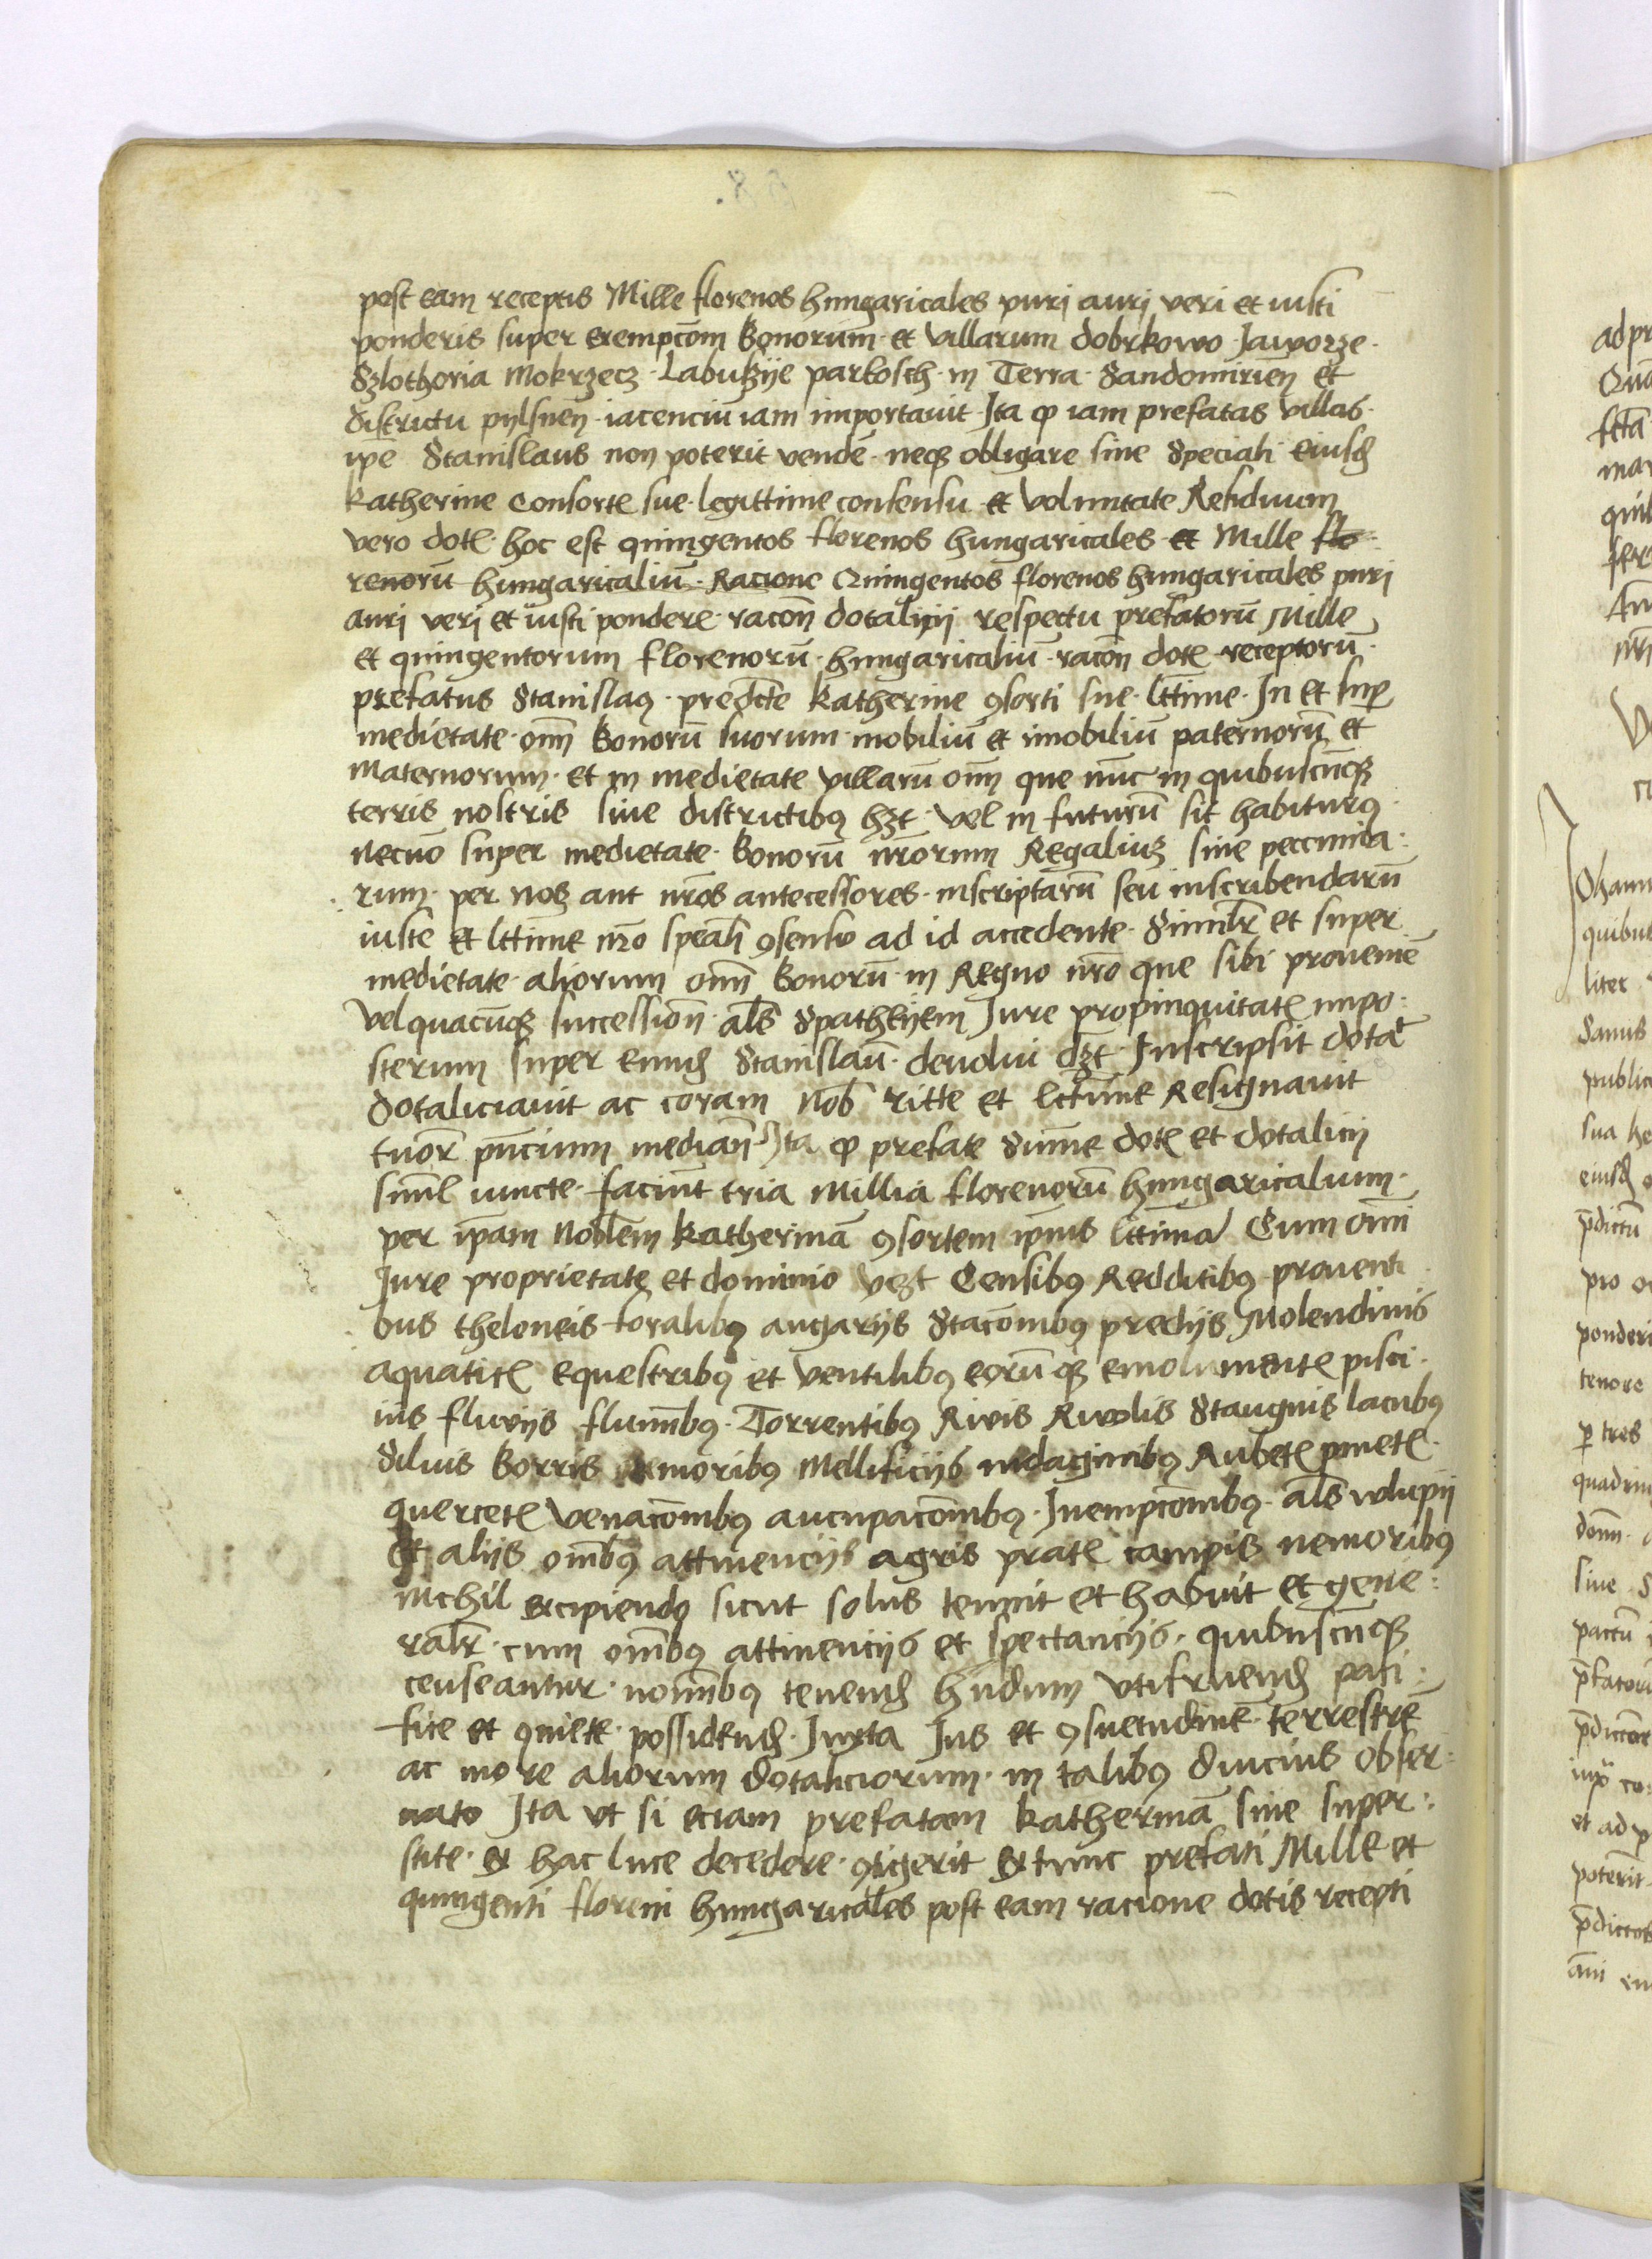 post eam receptis Mille florenos hungaricales puri auri veri et iusti
ponderis super exempcōm bonorum et villarum dobrkowo Jaworze
Szlothoria Mokrzecz Labuzije parkosch in Terra Sandomirien̄ et
districtu pylsnen̄ iacenciū iam importauit Ita ꝙ iam prefatas villas
ipe Stanislaus non poterit vendē neqꝫ obligare sine Speciali eiusd
katherine Consortꝭ sue legittime consensu et voluntate Residuum
vero dotꝭ hoc est quingentos florenos hungaricales et Mille flo
renorū hungaricaliū Racione Quingentos florenos hungaricales puri
auri veri et iusti ponderꝭ racōn dotalicij respectu prefatorū Mille
et quingentorum florenorū hungaricaliū racōn dotꝭ receptorū
prefatus Stanislaꝰ predcte katherine ꝯsorti sue lttime In et sup
medietate om̄ bonorū suorum mobiliū et imobiliū paternorū et
maternorum et in medietate villarū om̄ que nūc in quibuscūqꝫ
terris nostris siue districtibꝰ hꝫt vel in futurū sit habiturꝰ
necno super medietate bonorū nr̄orum Regaliuꝫ siue peccunia
rum per nos aut nr̄os antecessores inscriptarū seu inscribendarū
iuste et lttime nr̄o spealī ꝯsensu ad id accedente Similr et super
medietate aliorum om̄ bonorū in Regno nr̄o que sibi proueniē
vel quacūqꝫ succession̄ als Spatheyem Jure propinquitatꝭ inpo
sterum super eund Stanislaū deuolui dꝫt Inscripsit dota
dotaliciauit ac coram nob ritte et lcttime Resignauit
tuor pn̄cium median̄ Ita ꝙ prefate Sum̄e dotꝭ et dotalicij
siml iuncte faciūt tria Millia florenorū hungaricalium
per ip̄am noblem katherinā ꝯsortem ip̄ius lttimā Cum om̄i
Jure proprietate et dominio vꝫt Censibꝰ Redditibꝰ prouenti
bus theloneis foralibꝰ angarijs Stacōnibꝰ predijs Molendinis
aquaticꝭ equestribꝰ et ventilibꝰ eorūqꝫ emolumentꝭ pisci
nis fluvijs flumībꝰ Torrentibꝰ Rivis Rivolis Staugnis lacubꝰ
Siluis borris nemoribꝰ Mellificijs indaginibꝰ Rubetꝭ pinetꝭ
quercetꝭ venacōnibꝰ aucupacōnibꝰ Inempcōnibꝰ als wlupij
Et alijs om̄ibꝰ attinencijs agris pratꝭ campis nemoribꝰ
nichil excipiendo sicut solus tenuit et habuit et gene
ralr cum om̄ibꝰ attinencijs et spectancijs quibuscūqꝫ
censeantur nom̄ibꝰ tenend hn̄dum vtifruend paci
fice et quiete possidend Iuxta Jus et ꝯsuetudinē terrestrē
ac more aliorum dotaliciorum in talibꝰ diucius obser
uato Ita vt si eciam prefatam katherinā siue super
stite ex hac luce decedere ꝯtigerit extunc prefati Mille et
quingenti floreni hungaricales post eam racione dotis recepti